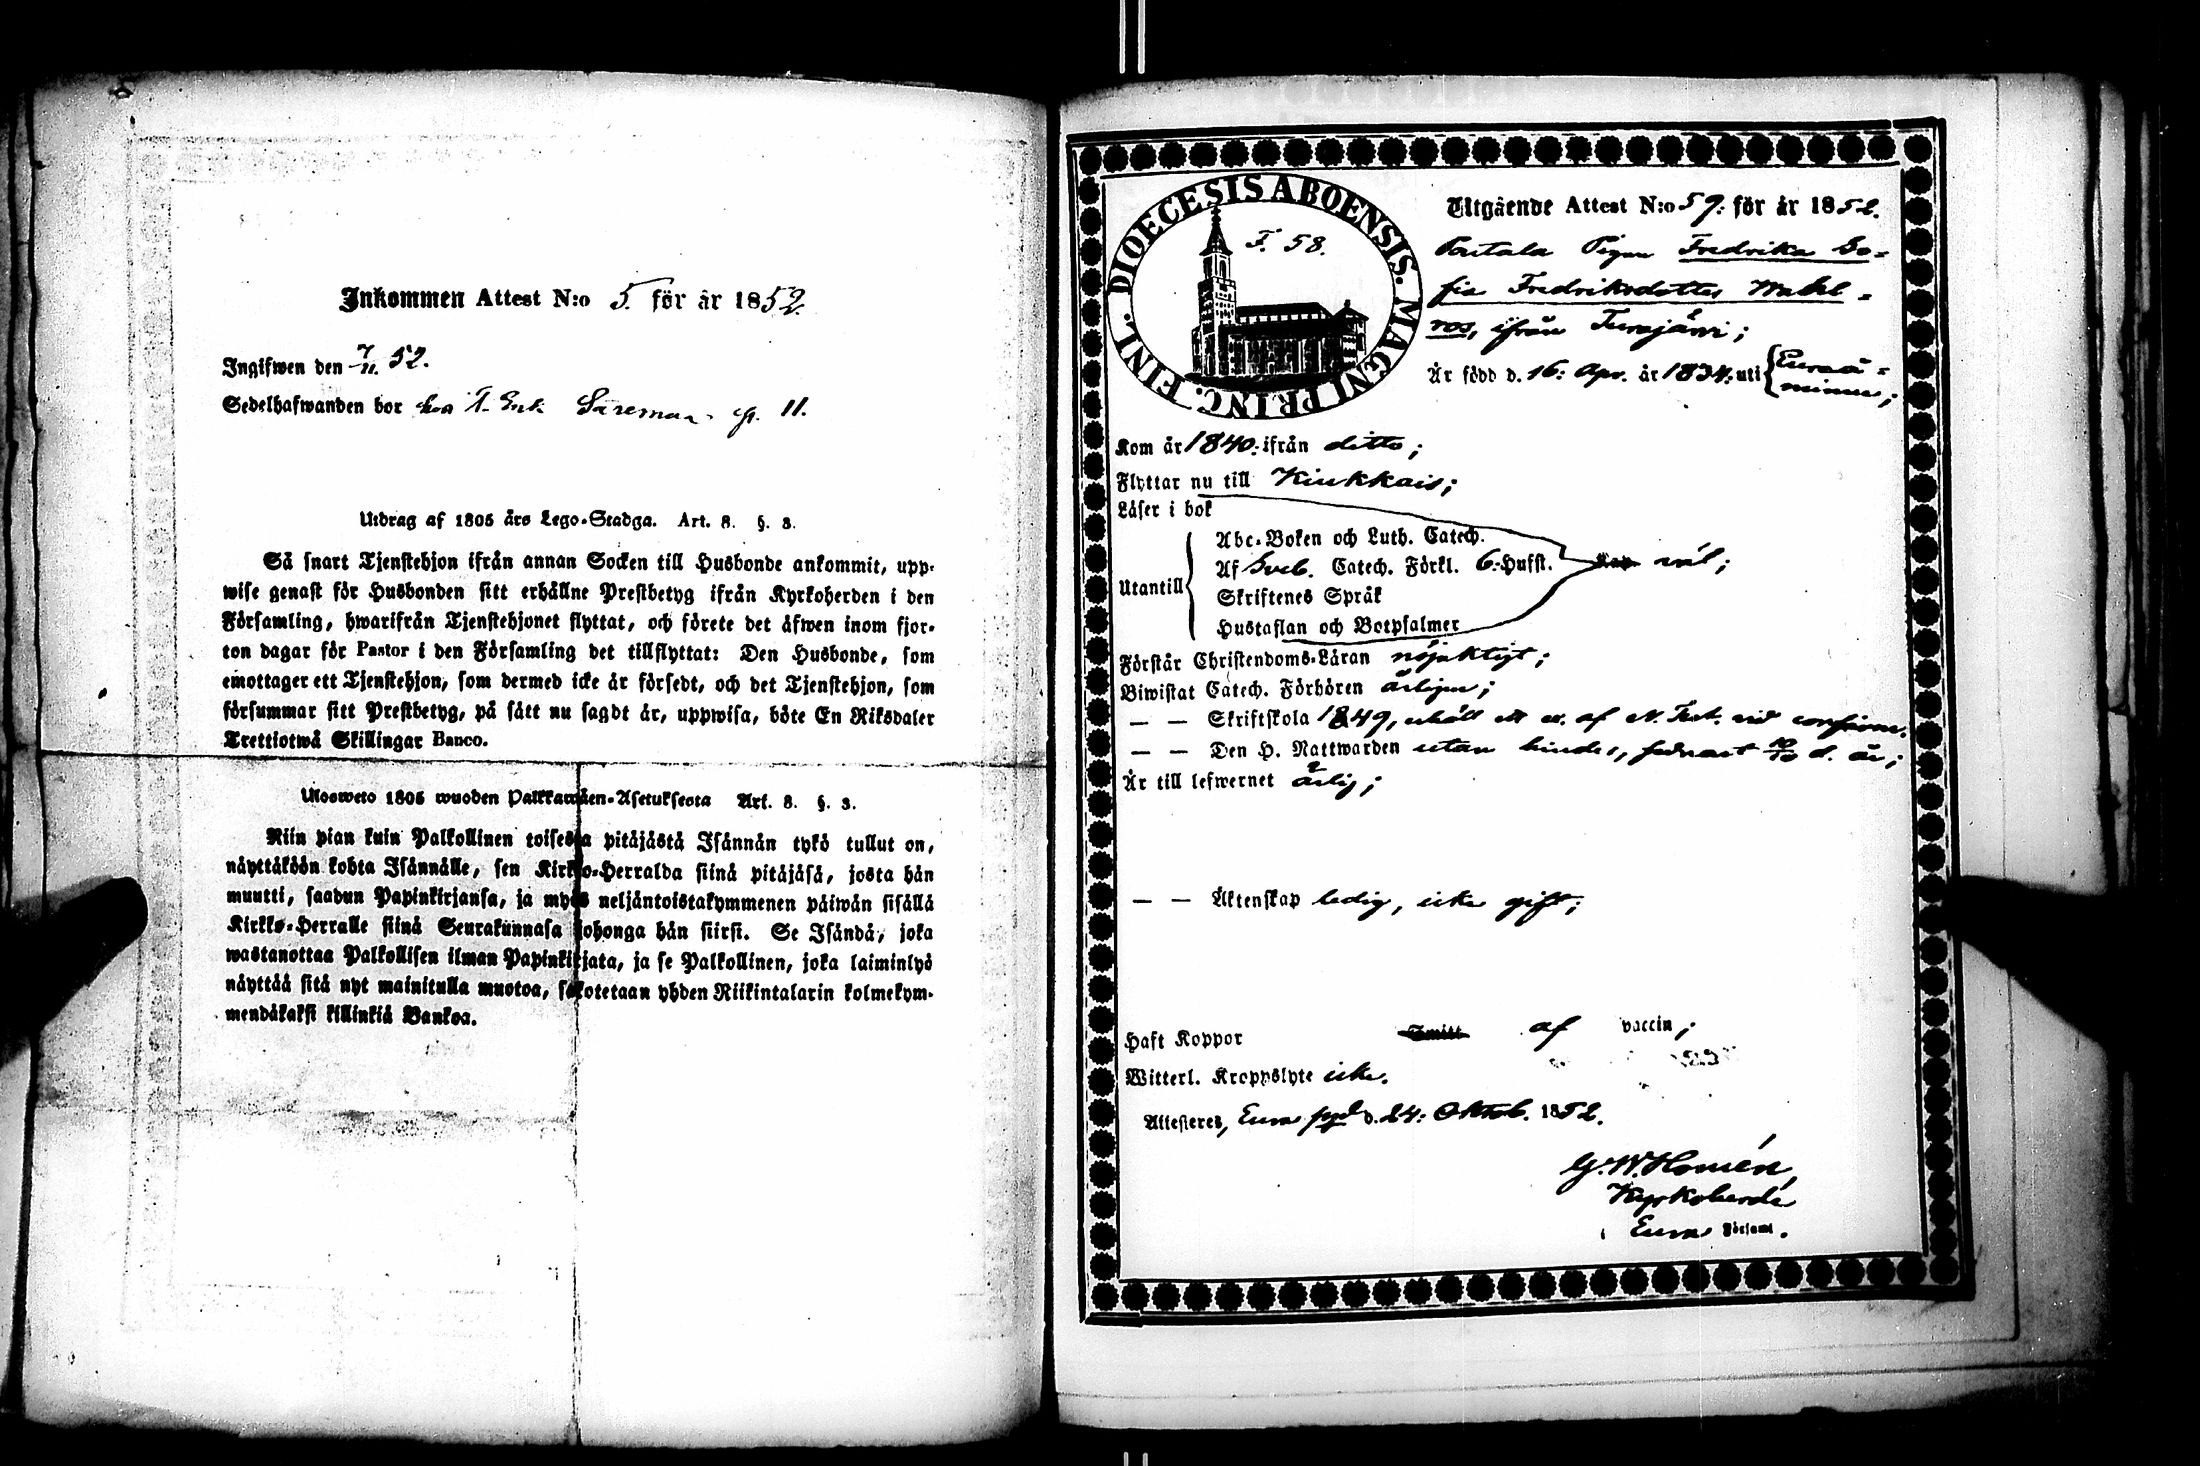 Inkommen Attest N:o 5. för år 1852.
Ingifwen den 7/11. 52.
Sedelhafwanden bor hos T. Enk. Säremaa p. 11.
Utdrag af 1805 års Lego-Stadga. Art. 8. §. 3.
Så snart Tjenstehjon ifrån annan Socken till Husbonde ankommit, upp-
wise genast för Husbonden sitt erhållne Prestbetyg ifrån Kyrkoherden i den
Församling, hwarifrån Tjenstehjonet flyttat, och förete det äfwen inom fjor-
ton dagar för Pastor i den Församling det tillflyttat: Den Husbonde, som
emottager ett Tjenstehjon, som dermed icke är försedt, och det Tjenstehjon, som
försummar sitt Prestbetyg, på sätt nu sagdt är, uppwisa, böte En Riksdaler
Trettiotwå Skillingar Banco.
Ulosweto 1805 wuoden Palkkawäen-Asetuksesta Art. 8. §. 3.
Niin pian kuin Palkollinen toisesta pitäjästä Isännän tykö tullut on,
näyttäköön kohta Isännälle, sen Kirkko-Herralda siinä pitäjäsä, josta hän
muutti, saadun Papinkirjansa, ja myös neljäntoistakymmenen päiwän sisällä
Kirkko-Herralle siinä Seurakunnasa johonga hän siirsi. Se Isändä, joka
wastanottaa Palkollisen ilman Papinkirjata, ja se Palkollinen, joka laiminlyö
näyttää sitä nyt mainitulla muotoa, sakotetaan yhden Riikintalarin kolmekym-
mendäkaksi killinkiä Bankoa.
DIOECESIS ABOENSIS. MAGNI PRINC. FINL.
F. 58.
Utgående Attest N:o 59: för år 1852.
Pigan Fredrika So-
fia Fredriksdotter Wahl-
ros, ifrån Turajärvi;
Är född d. 16: Apr. år 1834: uti Euraå-
minne;
Kom år 1840: ifrån ditto;
Flyttar nu till Kiukkais;
Läser i bok
Utantill
Abc-Boken och Luth. Catech.
Af Sveb. Catech. Förkl. 6: Hufst. väl;
Skriftenes Språk
Hustaflan och Botpsalmer
Förstår Christendoms-Läran nöjaktigt;
Biwistat Catech. Förhören årligen;
— — Skriftskola 1849, erhöll ett ex. af N. Test. vid confirm.
— — Den H. Nattwarden utan hinder, sednast 10/10 d. år;
Är till lefwernet ärlig;
— — Äktenskap ledig, icke gift;
Haft Koppor af vaccin;
Witterl. Kroppslyte icke.
Attesteres, Eura d. 24: Oktob. 1852.
G. W. Homén,
Kyrkoherde
i Eura Församl.